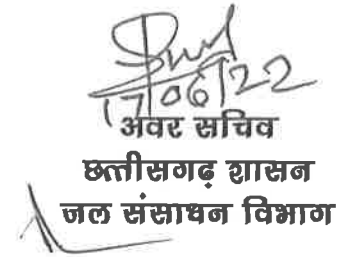 17/06/22
अवर सचिव
छत्तीसगढ़ शासन
जल संसाधन विभाग